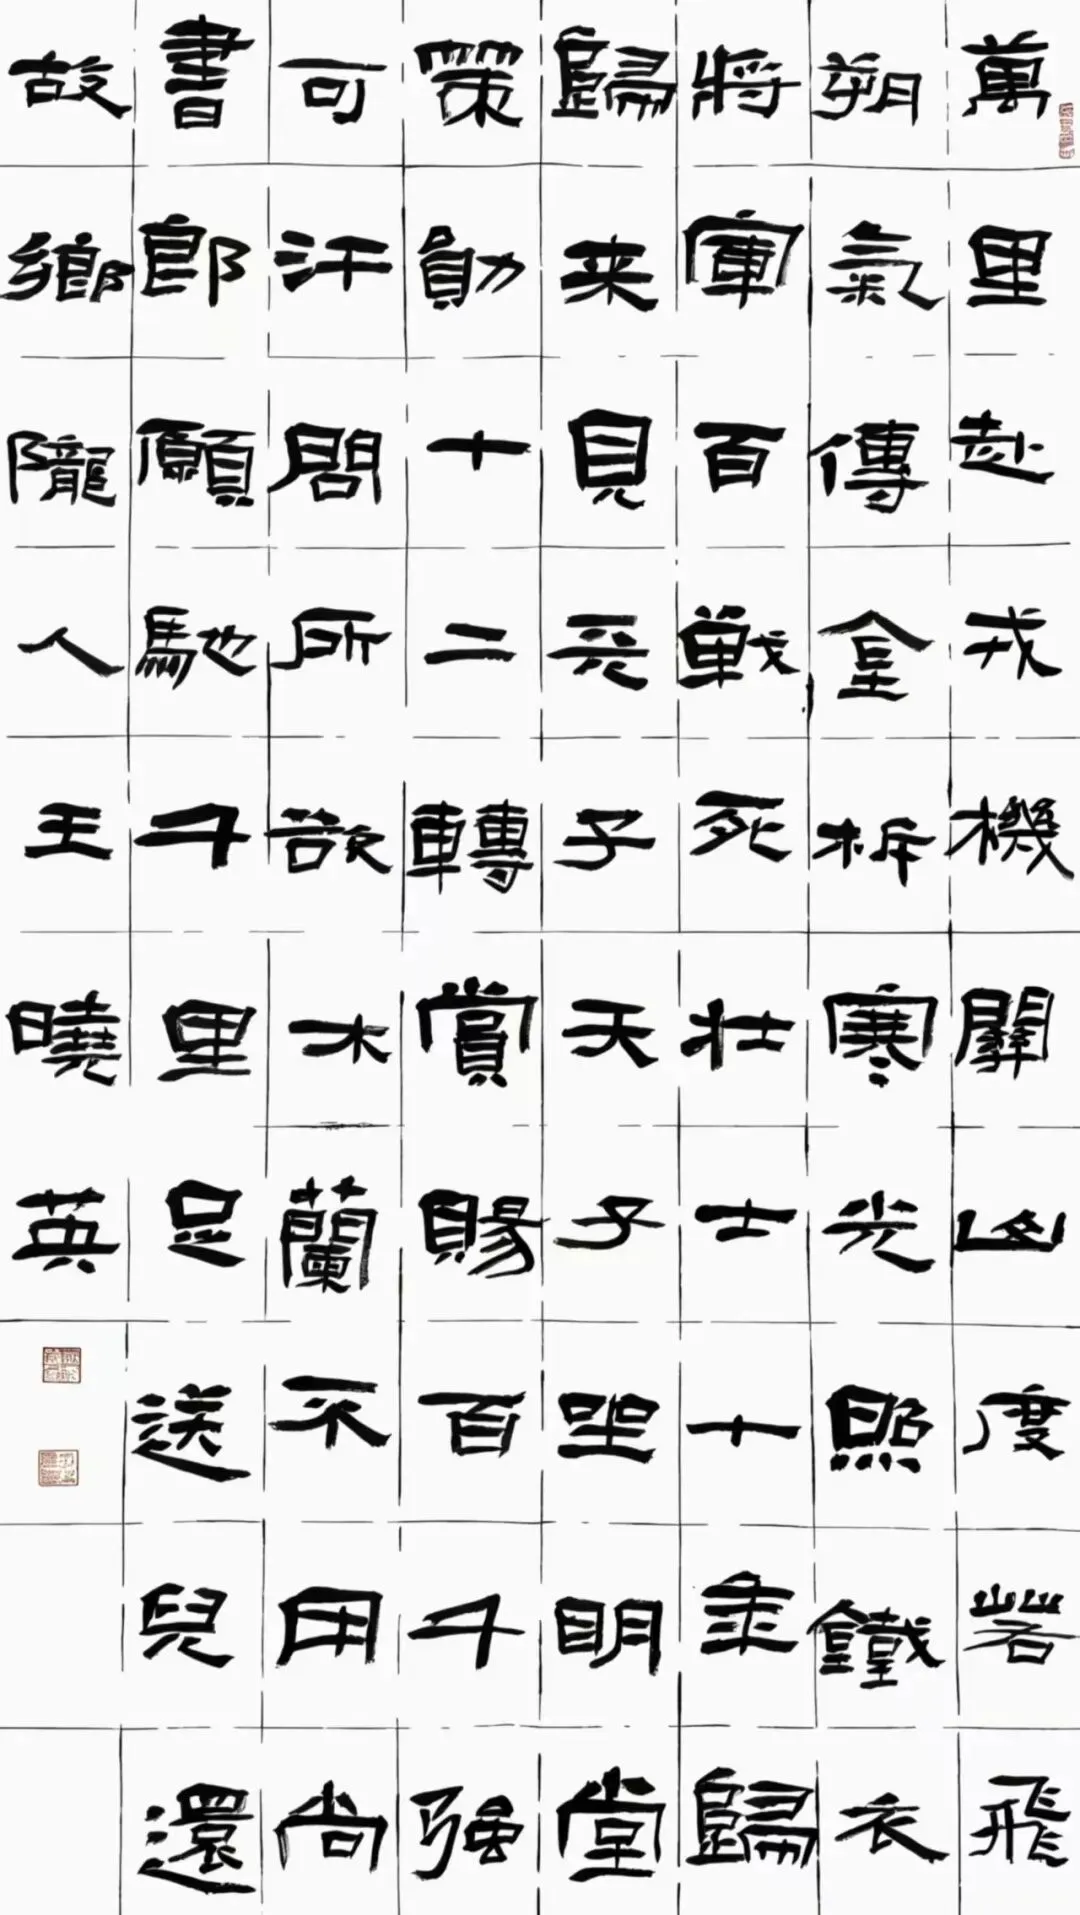 萬里赴戎機關山度若飛
朔氣傳金柝寒光照鐵衣
將軍百戰死壯士十年歸
歸来見天子天子坐明堂
策勛十二轉賞賜百千强
可汗問所欲木蘭不用尚
書郎願馳千里足送兒還
故鄉隴人王曉英